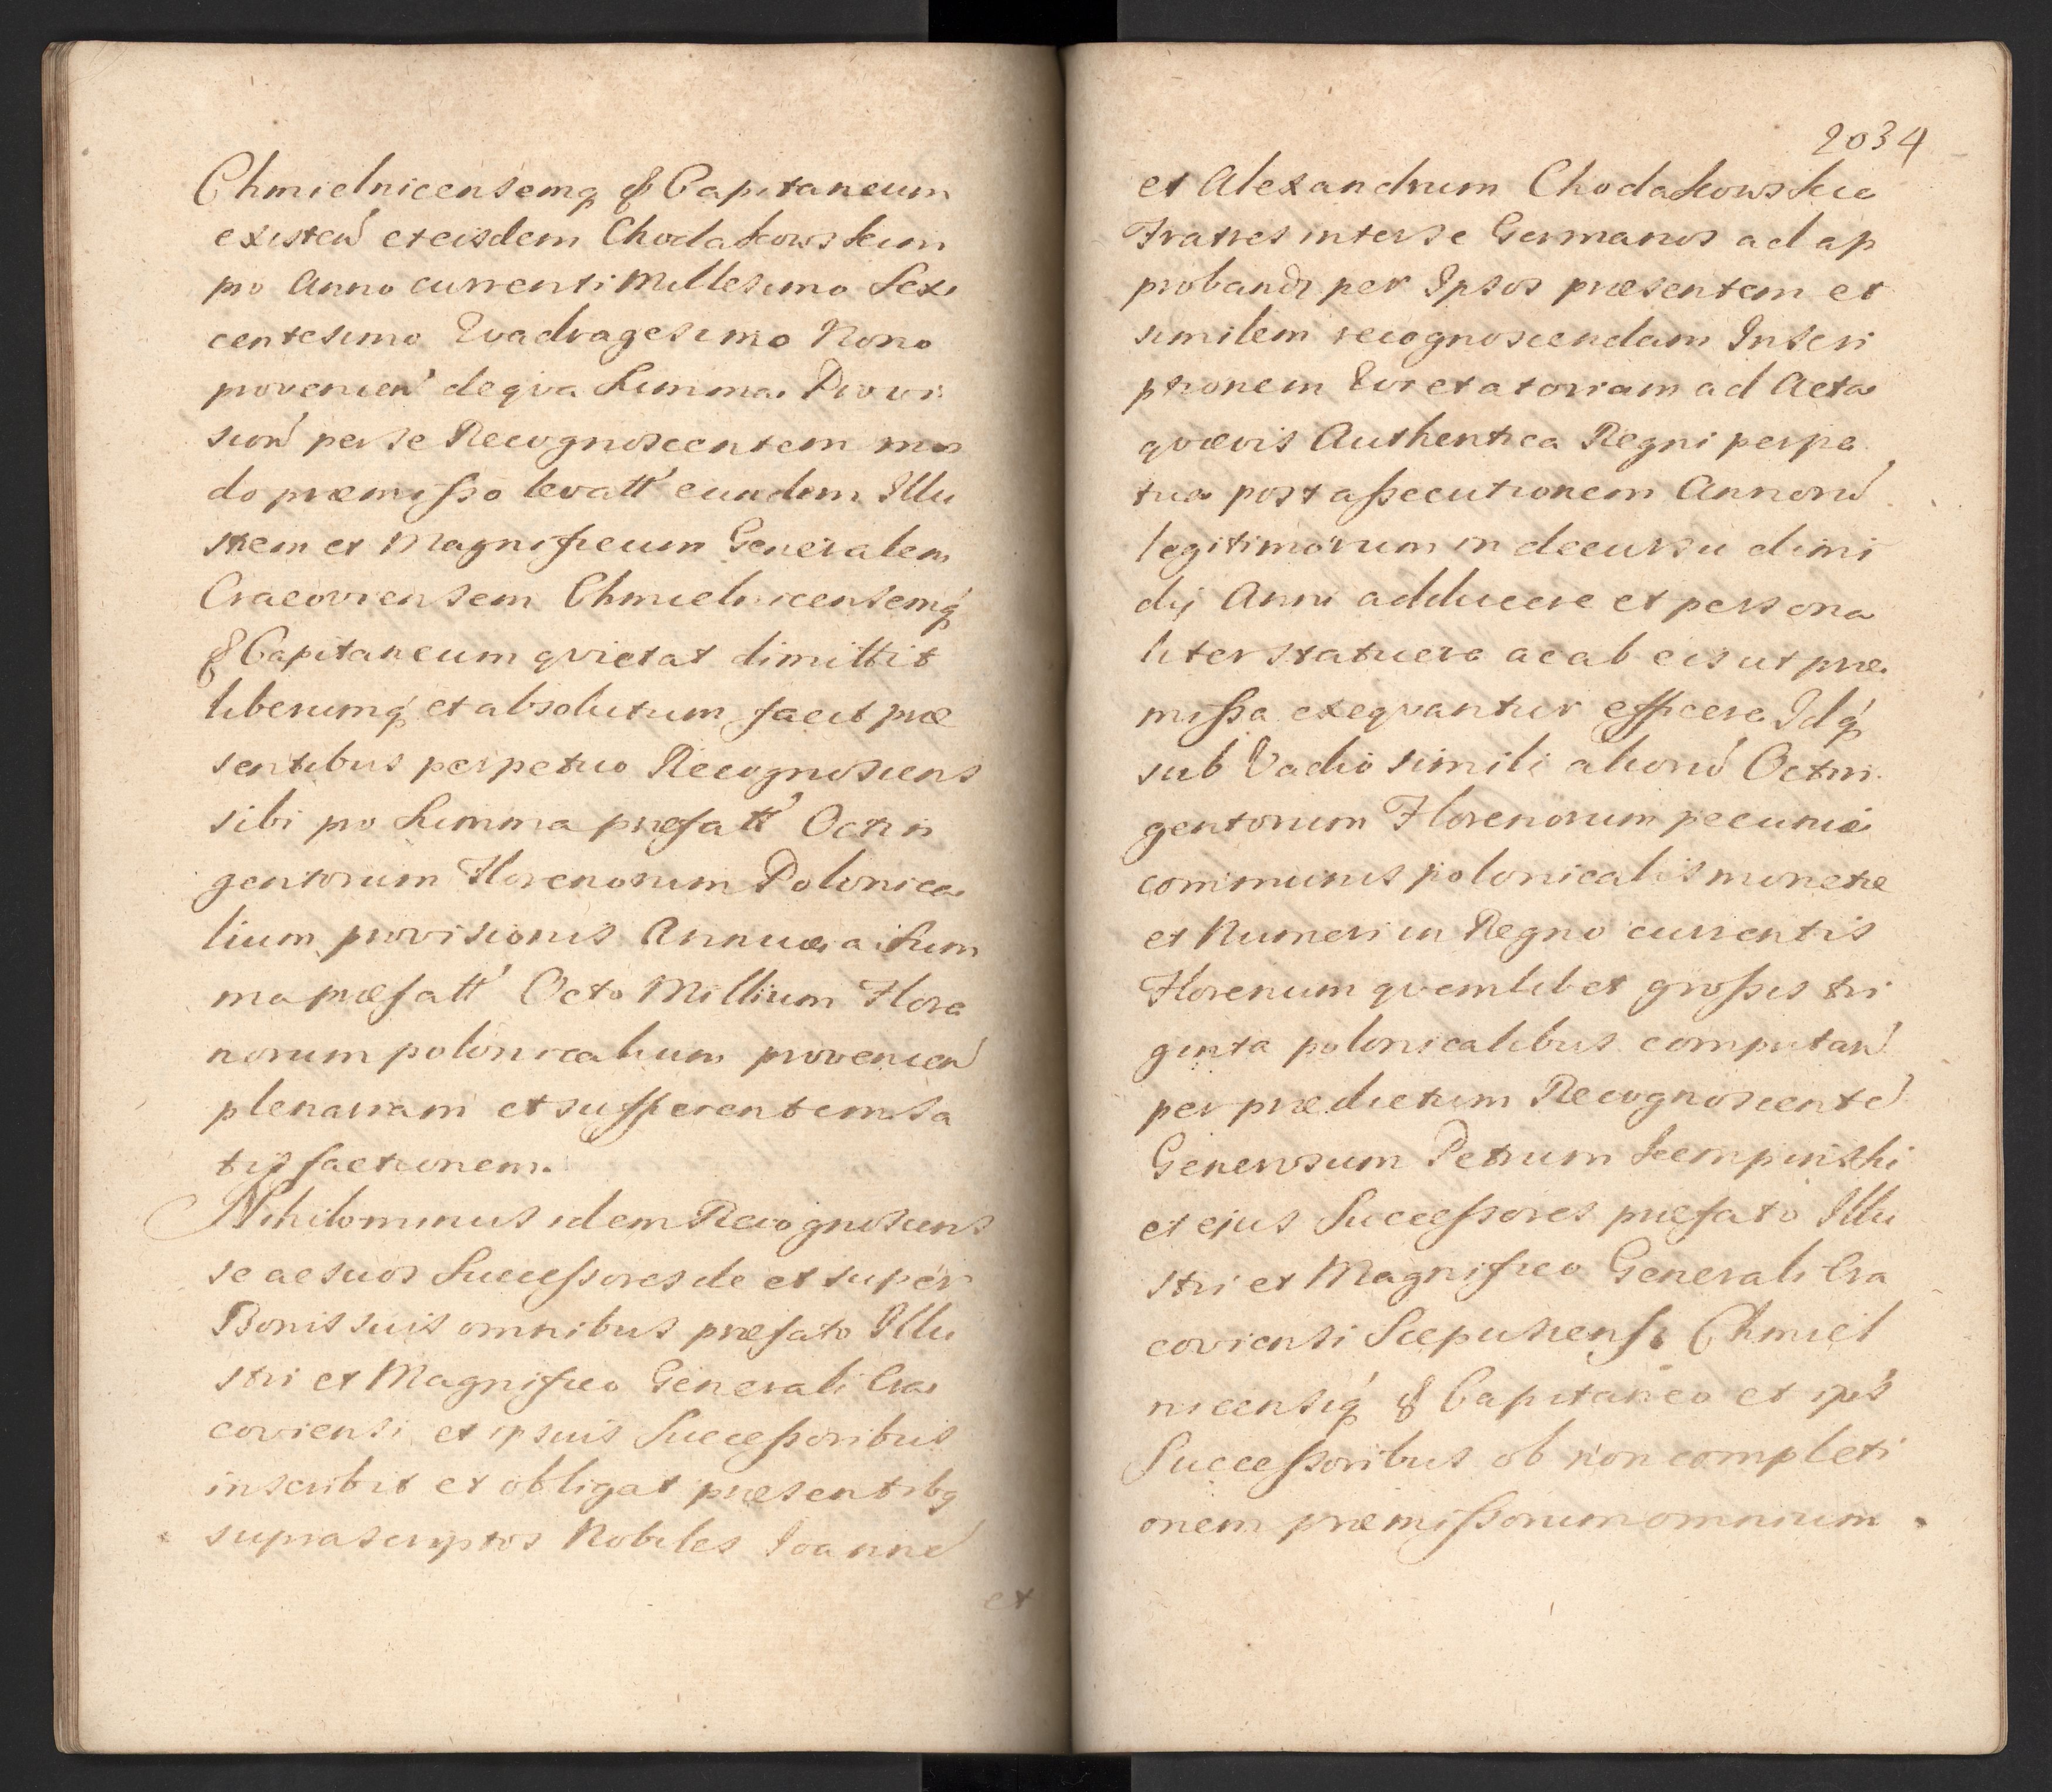 Chmielnicensemq & Capitaneum
existen̄ et eisdem Chodakowskim
pro Anno currenti Millesimo Sex
centesimo Qvadragesimo Nono
provenien̄ de qva Summa Provi
sion̄ per se Recognoscentem mo
do præmisso levatt eundem Illu
strem et Magnificum Generalem
Cracoviensem Chmielnicensemq
& Capitaneum qvietat dimittit
liberumq et absolutum facit præ
sentibus perpetuo Recognoscens
sibi pro Summa præfatt Octin
gentorum Florenorum Polonica
lium provisionis Annuæ a Sum
ma præfatt Octo Millium Flore
norum polonicalium provenien̄
plenariam et sufficientem sa
tisfactionem.
Nihilominus idem Recognoscens
se ac suos Successores de et super
Bonis suis omnibus præfato Illu
stri et Magnifico Generali Cra
coviensi et ipsius Successoribus
inscribit et obligat præsentibq
suprascriptos Nobiles Joanne̅
et
2034
et Alexandrum Chodakowskie
Fratres inter se Germanos ad ap
proband per Ipsos præsentem et
similem recognoscendam Inscri
ptionem Qvietatoriam ad Acta
qvævis Authentica Regni perpe
tua post assecutionem Annoru̅
legitimorum in decursu dimi
dij Anni adducere et persona
liter statuere ac ab eis ut præ
missa exeqvantur efficere Idq
sub Vadio simili alioru̅ Octin
gentorum Florenorum pecuniæ
communis polonicalis monetæ
et Numeri in Regno currentis
Florenum qvemlibet grossis tri
ginta polonicalibus computan̄
per prædictum Recognoscente̅
Generosum Petrum Kempinski
et ejus Successores præfato Illu
stri et Magnifico Generali Cra
coviensi Scepusiensi Chmiel
nicensiq & Capitaneo et ips
Successoribus ob non completi
onem præmissorum omnium